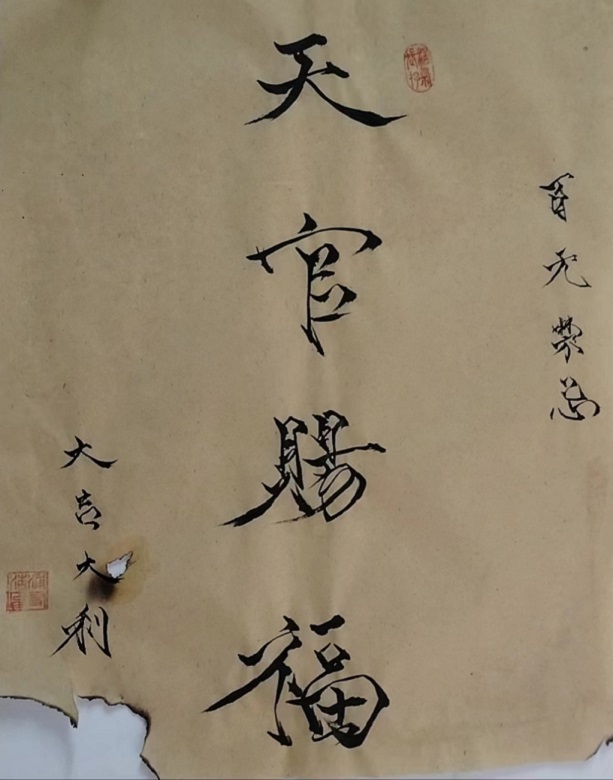 百无禁忌
天官赐福
大吉大利